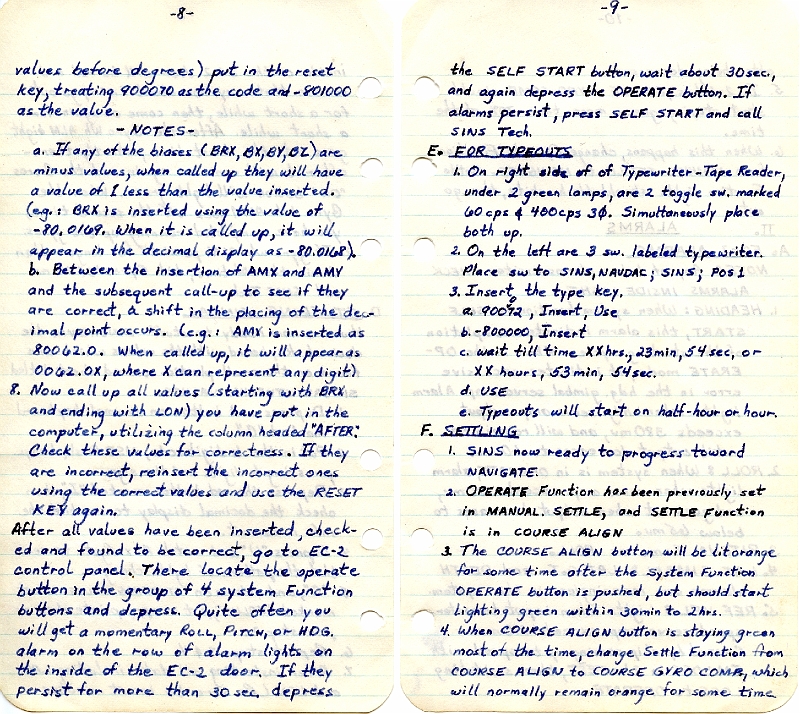 -8-
values before degrees) put in the reset
key, treating 900070 as the code and -801000
as the value.
- NOTES -
a. If any of the biases (BRX, BX, BY, BZ) are
minus values, when called up they will have
a value of 1 less than the value inserted.
(e.g.: BRX is inserted using the value of
-80.0169. When it is called up, it will
appear in the decimal display as -80.0168).
b. Between the insertion of AMX and AMY
and the subsequent call-up to see if they
are correct, a shift in the placing of the dec-
imal point occurs. (e.g.: AMX is inserted as
80062.0. When called up, it will appear as
0062.0X, where X can represent any digit)
8. Now call up all values (starting with BRX
and ending with LON) you have put in the
computer, utilizing the column headed "AFTER."
Check these values for correctness. If they
are incorrect, reinsert the incorrect ones
using the correct values and use the RESET
KEY again.
After all values have been inserted, check-
ed and found to be correct, go to EC-2
control panel. There locate the operate
button in the group of 4 system Function
buttons and depress. Quite often you
will get a momentary ROLL, PITCH, or HDG.
alarm on the row of alarm lights on
the inside of the EC-2 door. If they
persist for more than 30 sec, depress
-9-
the SELF START button, wait about 30sec,
and again depress the OPERATE button. If
alarms persist, press SELF START and call
SINS Tech.
E. FOR TYPEOUTS
1. On right side of of Typewriter-Tape Reader,
under 2 green lamps, are 2 toggle sw. marked
60 cps & 400cps 3Φ. Simultaneously place
both up.
2. On the left are 3 sw. labeled typewriter.
Place sw to SINS, NAVDAC; SINS; POS 1
3. Insert the type key.
a. 90072, Insert, Use
b. -800000, Insert
c. wait till time XXhrs., 23min, 54sec, or
XX hours, 53 min, 54sec.
d. USE
e. Typeouts will start on half-hour or hour.
F. SETTLING
1. SINS now ready to progress toward
NAVIGATE.
2. OPERATE Function has been previously set
in MANUAL SETTLE, and SETTLE Function
is in COURSE ALIGN
3. The COURSE ALIGN button will be lit orange
for some time after the System Function
OPERATE button is pushed, but should start
lighting green within 30min to 2hrs.
4. When COURSE ALIGN button is staying green
most of the time, change Settle Function from
COURSE ALIGN to COURSE GYRO COMP, which
will normally remain orange for some time